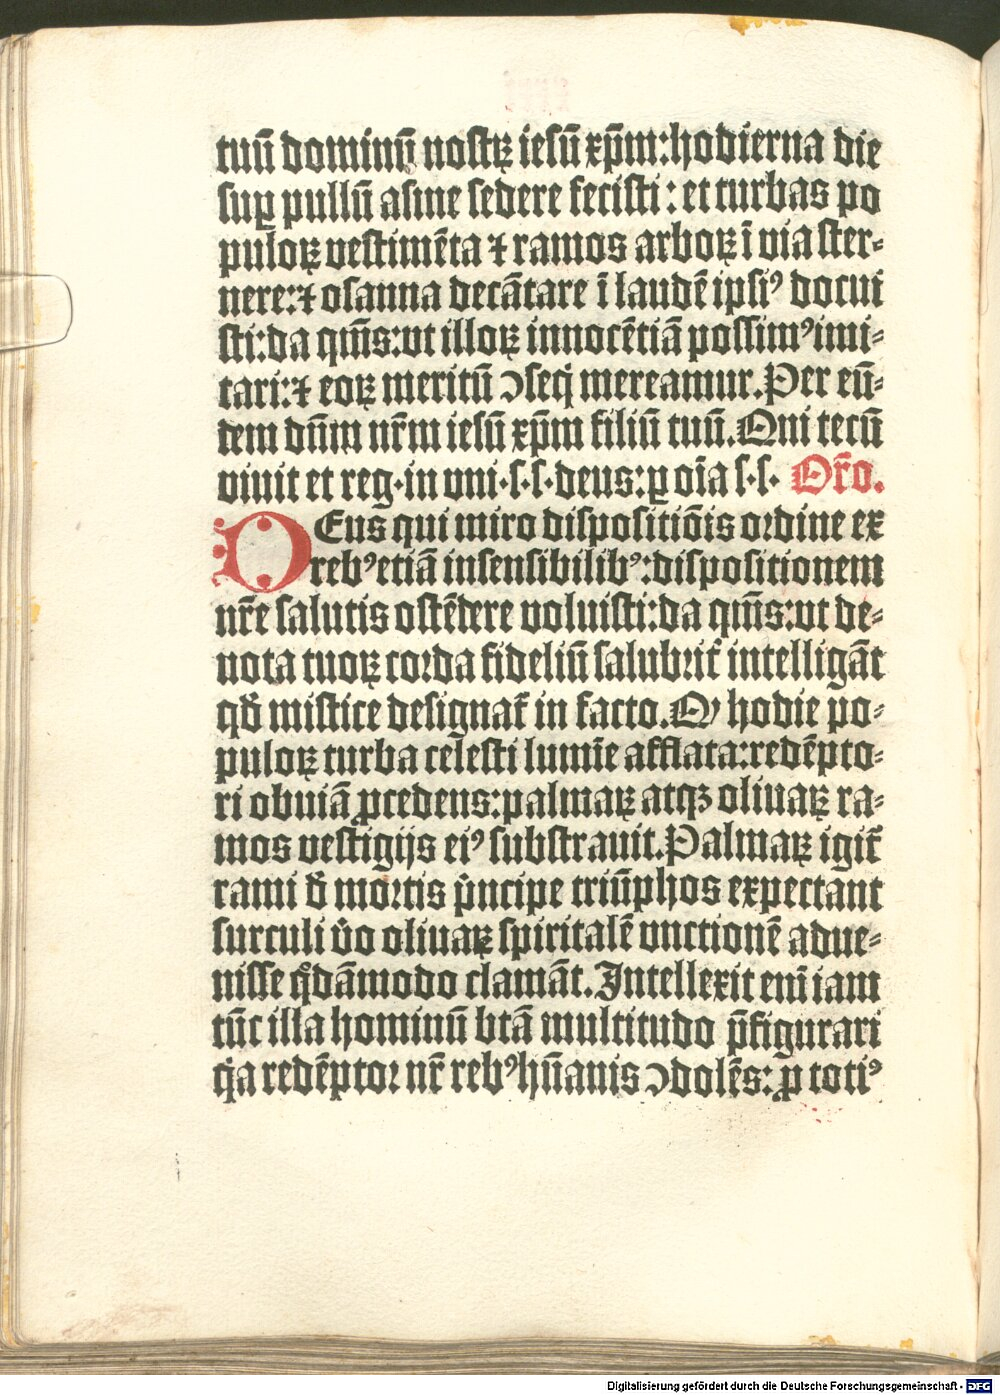 tuū dominū nostꝝ iesū xp̄m:hodierna die
suꝑ pullū asine sedere fecisti: et turbas po
puloꝝ vestimēta ⁊ ramos arboꝝ ī via ster⸗
nere:⁊ osanna decātare ī laudē ipsiꝰ docui
sti:da qm̄s:vt illoꝝ innocētiā possimꝰ imi⸗
tari:⁊ eoꝝ meritū ↄseq̄ mereamur.Per eū⸗
dem dn̄m nr̄m iesū xp̄m filiū tuū.Qui tecū
viuit et reg·in vni·s·s·deus:ꝑ oīa s·s· Or̄o.
DEus qui miro dispositiōis ordine ex
rebꝰ etiā insensibilibꝰ:dispositionem
nr̄e salutis ostēdere voluisti:da qm̄s:vt de⸗
uota tuoꝝ corda fideliū salubrit̄ intelligāt
qd̄ mistice designat̄ in facto.Qꝰ hodie po⸗
puloꝝ turba celesti lumīe afflata:redēpto⸗
ri obuiā ꝓcedens:palmaꝝ atqꝫ oliuaꝝ ra⸗
mos vestigijs eiꝰ substrauit.Palmaꝝ igit̄
rami d̄ mortis p̄ncipe triūphos expectant
surculi v̄o oliuaꝝ spiritalē vnctionē adue⸗
nisse qͦdāmodo clamāt.Intellexit enī iam
tūc illa hominū btā multitudo p̄figurari
qͥa redēptor nr̄ rebꝰ hūanis ↄdolēs: ꝓ totiꝰ
Digitalisierung gefördert durch die Deutsche Forschungsgemeinschaft - DFG